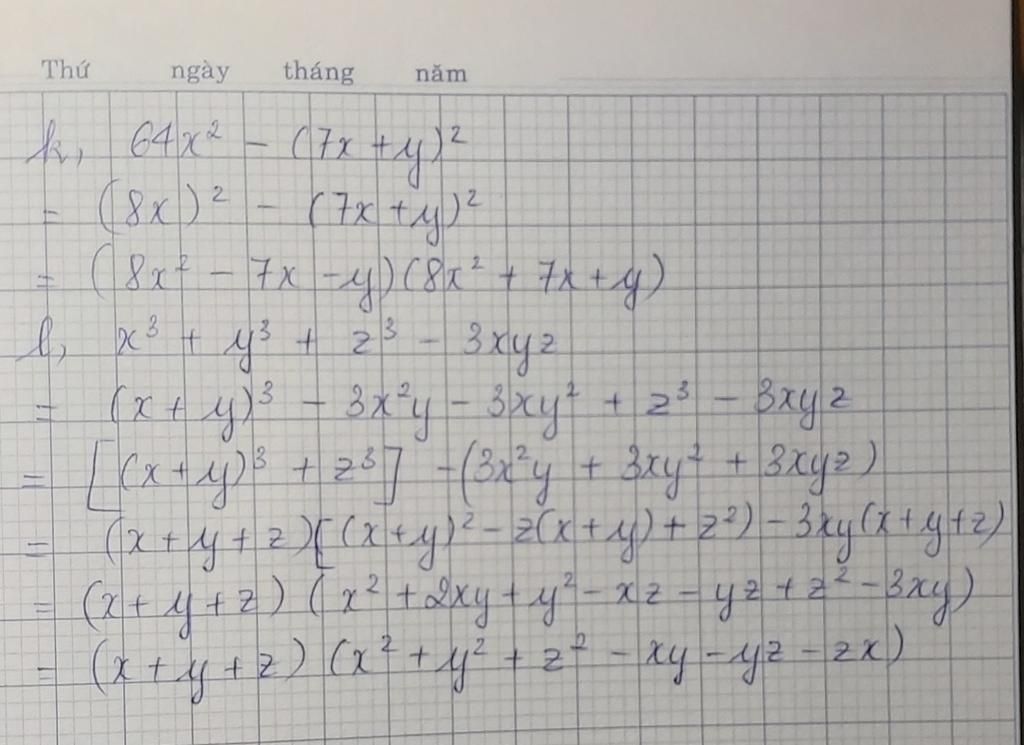 Thứ ngày tháng năm
k, 64x² - (7x + y)²
= (8x)² - (7x + y)²
= (8x² - 7x - y)(8x² + 7x + y)
l, x³ + y³ + z³ - 3xyz
= (x + y)³ - 3x²y - 3xy² + z³ - 3xyz
= [(x + y)³ + z³] - (3x²y + 3xy² + 3xyz)
= (x + y + z)[(x + y)² - z(x + y) + z²) - 3xy(x + y + z)
= (x + y + z) (x² + 2xy + y² - xz - yz + z² - 3xy)
= (x + y + z) (x² + y² + z² - xy - yz - zx)